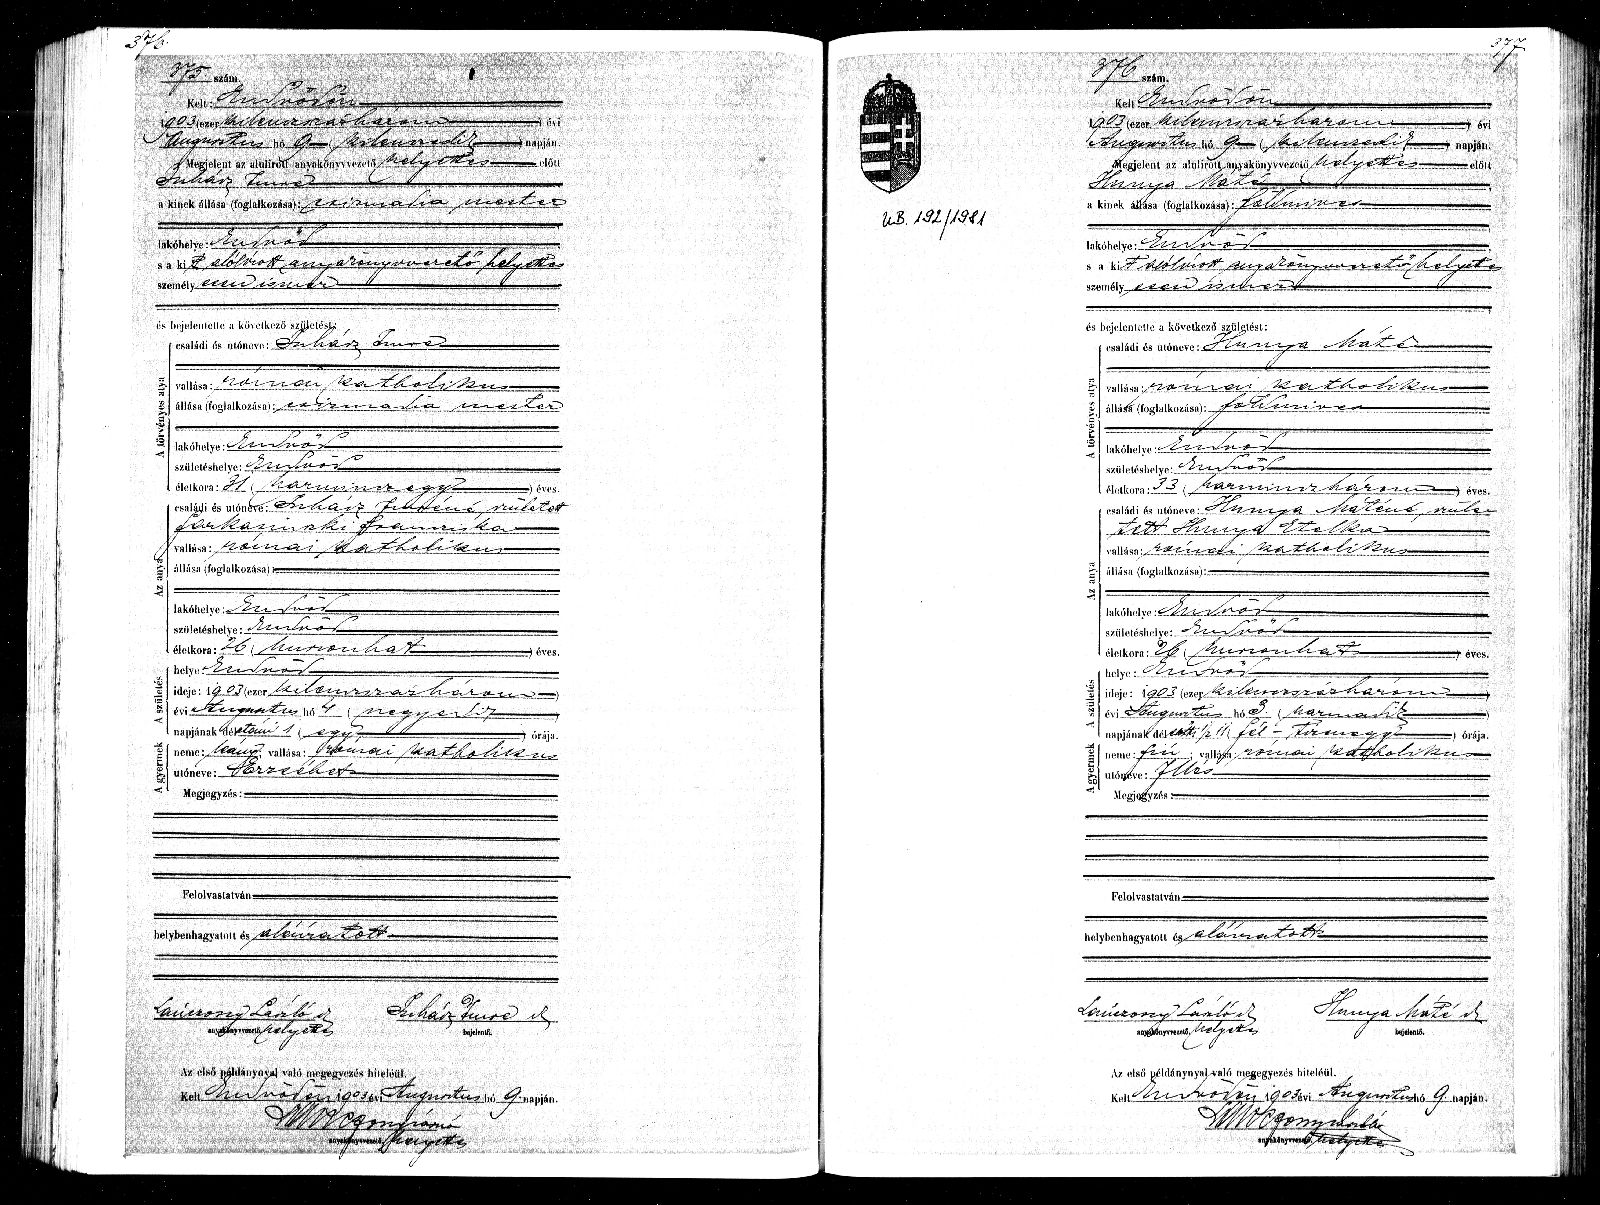 376
375 szám.
Kelt: Endrődön
1903 (ezer kilenczszázhárom ) évi
Augusztus hó 9 ( kilenczedik ) napján.
Megjelent az alulirott anyakönyvvezető helyettes előtt
Juhász Imre
a kinek állása (foglalkozása): csizmadia mester
lakóhelye: Endrőd
s a kit alólírott anyakönyvvezető helyettes
személyesen ismer
és bejelentette a következő születést:
A törvényes atya
családi és utóneve: Juhász Imre
vallása: római katholikus
állása (foglalkozása): csizmadia mester
lakóhelye: Endrőd
születéshelye: Endrőd
életkora: 31 ( harminczegy ) éves.
Az anya
családi és utóneve: Juhász Imréné, született
Farkasinszki Franciska
vallása: római katholikus
állása (foglalkozása):
lakóhelye: Endrőd
születéshelye: Endrőd
életkora: 26 ( huszonhat ) éves.
A születés
helye: Endrőd
ideje: 1903 (ezer kilenczszázhárom )
évi Augusztus hó 4 ( negyedik )
napjának délutáni 1 ( egy ) órája.
A gyermek
neme: leány vallása: római katholikus
utóneve: Erzsébet
Megjegyzés:
Felolvastatván
helybenhagyatott és aláíratott
László h
Juhász Imre h
anyakönyvvezető, helyettes
bejelentő.
Az első példánynyal való megegyezés hiteléül.
Kelt Endrődön, 1903 évi Augusztus hó 9. napján.
anyakönyvvezető helyettes
377
376 szám.
Kelt Endrődön
1903 (ezer kilenczszázhárom ) évi
Augusztus hó 9 ( kilenczedik ) napján.
Megjelent az alulirott anyakönyvvezető helyettes előtt
Hunya Máté
a kinek állása (foglalkozása): földmíves
UB. 192/1981
lakóhelye: Endrőd
s a kit alólírott anyakönyvvezető helyettes
személyesen ismer
és bejelentette a következő születést:
A törvényes atya
családi és utóneve: Hunya Máté
vallása: római katholikus
állása (foglalkozása): földmíves
lakóhelye: Endrőd
születéshelye: Endrőd
életkora: 33 ( harminczhárom ) éves.
Az anya
családi és utóneve: Hunya Máténé, szüle
tett Hunya Etelka
vallása: római katholikus
állása (foglalkozása):
lakóhelye: Endrőd
születéshelye: Endrőd
életkora: 26 ( huszonhat ) éves.
A születés
helye: Endrőd
ideje: 1903 (ezer kilenczszázhárom )
évi Augusztus hó 3 ( harmadik )
napjának délelőtti 1/2 11 ( fél-tizenegy ) órája.
A gyermek
neme: fiú vallása: római katholikus
utóneve: Illés
Megjegyzés:
Felolvastatván
helybenhagyatott és aláíratott
László h
Hunya Máté h
anyakönyvvezető, helyettes
bejelentő.
Az első példánynyal való megegyezés hiteléül.
Kelt Endrődön, 1903 évi Augusztus hó 9 napján.
anyakönyvvezető helyettes